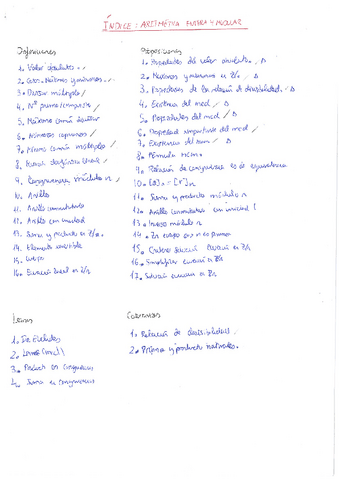 ÍNDICE: ARITMÉTICA ENTERA Y MODULAR
Definiciones
1. Valor absoluto
2. Cotas. Máximos y mínimos
3. Divisor múltiplo
4. Nº primo/compuesto
5. Máximo común divisor
6. Números coprimos
7. Mínimo común múltiplo
8. Ecuac. diofántica lineal
9. Congruencia módulo n
10. Anillo
11. Anillo conmutativo
12. Anillo con unidad
13. Suma y producto en Z/n
14. Elemento
15. Cuerpo
16. Ecuación lineal en Zn
Proposiciones
1. Propiedades del valor absoluto
2. Máximos y mínimos en Z
3. Propiedades de la relación de divisibilidad
4. Existencia del mcd
5. Propiedades del mcd
6. Propiedad importante del mcd
7. Existencia del mcm
8. Fórmula mcm
9. Relación de congruencia es de equivalencia
10. [a] = [r]n
11. Suma y producto módulo n
12. Anillo conmutativo con unidad
13. Inverso módulo n
14. Zn cuerpo n es primo
15. Criterio solución ecuación en Zn
16. Simplificar ecuación en Zn
17. Solución ecuación en Zn
Lemas
1. De Euclides
2. Lema (mcd)
3. Producto en congruencias
4. Suma en congruencias
Corolarios
1. Relación de divisibilidad
2. Primos y producto naturales